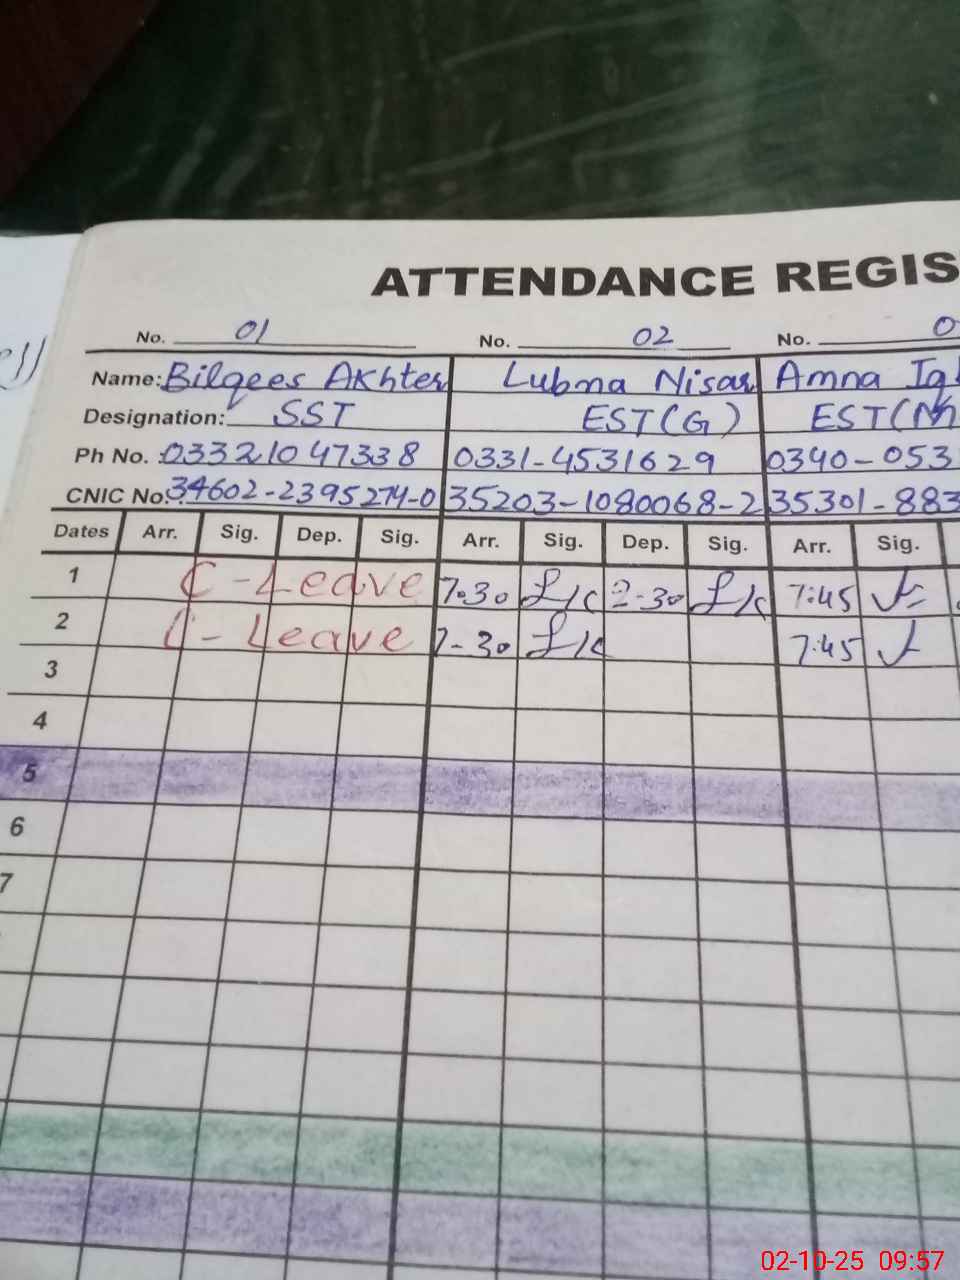 ATTENDANCE REGIS
No. 01 No. 02 No. 0
Name: Bilqees Akhter Lubma Nisar Amna Iq
Designation: SST EST(G) EST(M
Ph No. : 03321047338 0331-4531629 0340-053
CNIC No: 34602-2395274-0 35203-1080068-2 35301-883
Dates Arr. Sig. Dep. Sig. Arr. Sig. Dep. Sig. Arr. Sig.
1 C-Leave 7.30 2-30 7:45
2 C-Leave 7-30 7:45
3
4
5
6
7
02-10-25 09:57